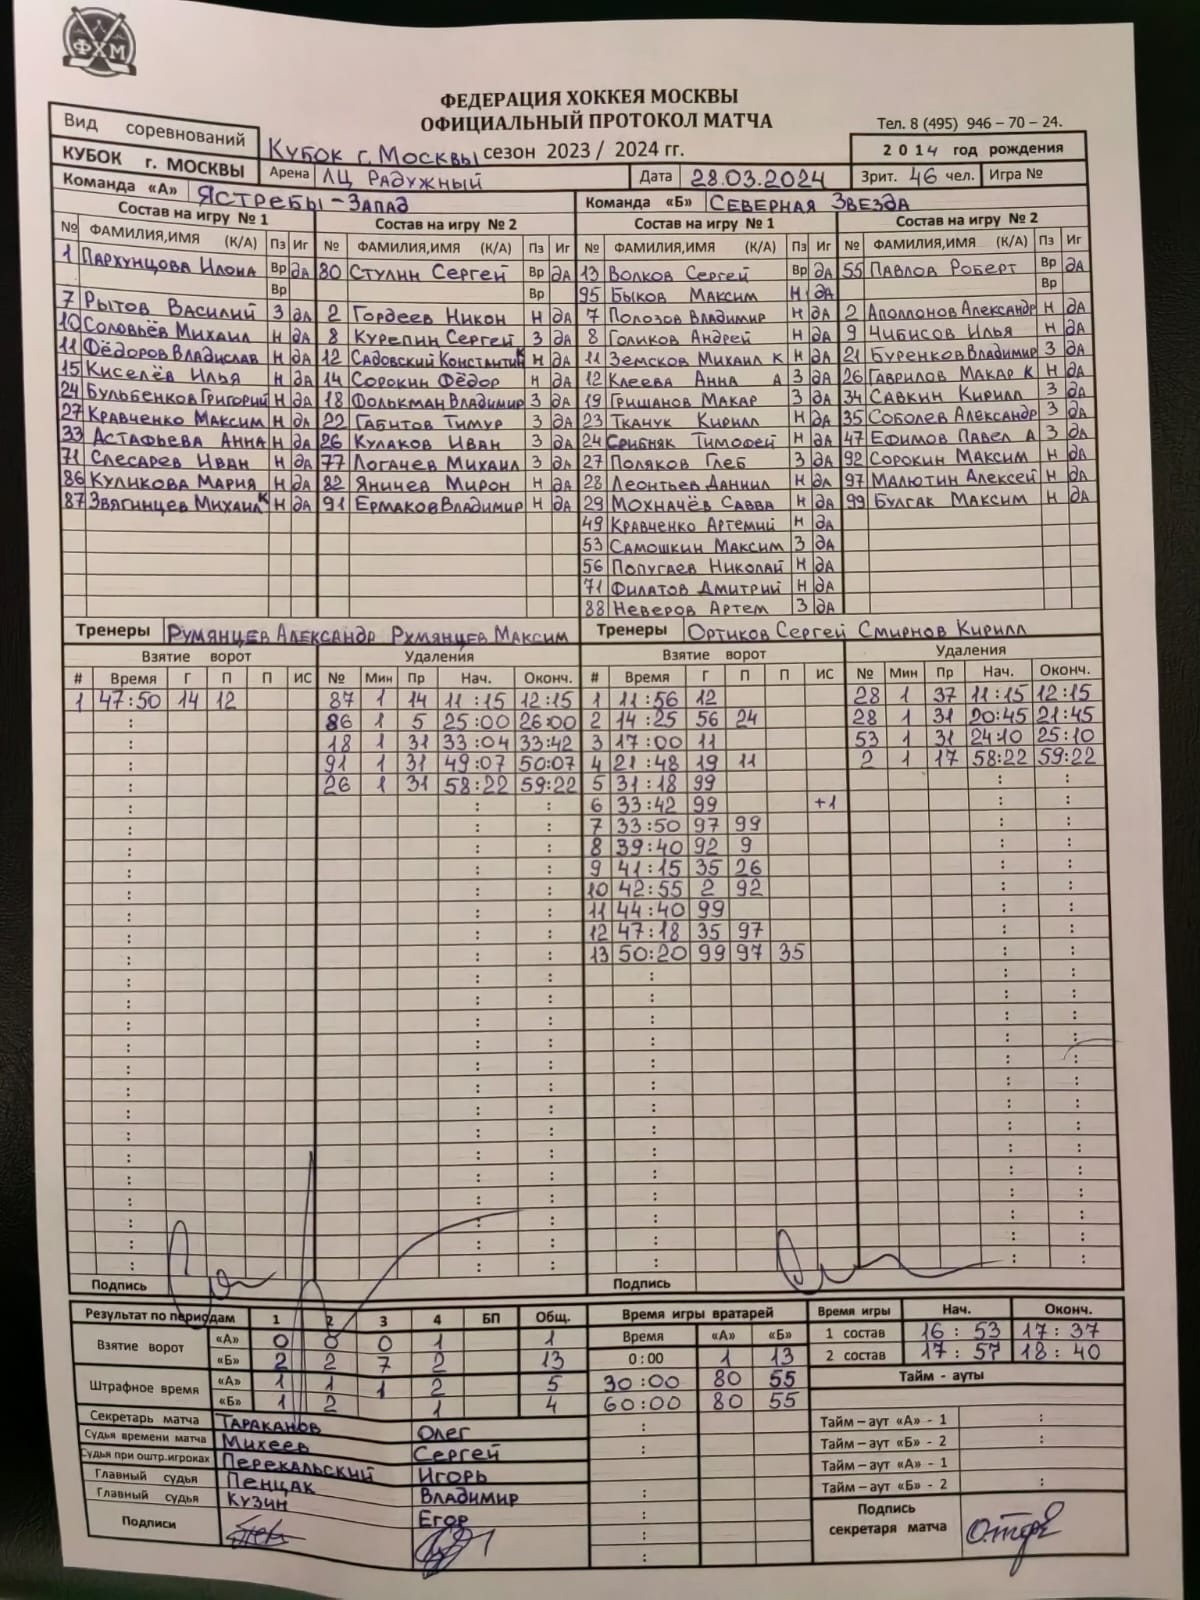 ФХМ
ФЕДЕРАЦИЯ ХОККЕЯ МОСКВЫ
ОФИЦИАЛЬНЫЙ ПРОТОКОЛ МАТЧА
Тел. 8 (495) 946 – 70 – 24.
Вид соревнований
КУБОК г. МОСКВЫ
Кубок г. Москвы сезон 2023 / 2024 гг.
2014 год рождения
Арена ЛЦ Радужный Дата 28.03.2024 Зрит. 46 чел. Игра №
Команда «А» Ястребы-Запад Команда «Б» Северная Звезда
Состав на игру № 1 Состав на игру № 2 Состав на игру № 1 Состав на игру № 2
№ ФАМИЛИЯ,ИМЯ (К/А) Пз Иг № ФАМИЛИЯ,ИМЯ (К/А) Пз Иг № ФАМИЛИЯ,ИМЯ (К/А) Пз Иг № ФАМИЛИЯ,ИМЯ (К/А) Пз Иг
1 Пархунцова Илона Вр да 80 Стулин Сергей Вр да 13 Волков Сергей Вр да 55 Павлов Роберт Вр да
Вр Вр 95 Быков Максим Н да Вр
7 Рытов Василий З да 2 Гордеев Никон Н да 7 Полозов Владимир Н да 2 Аполлонов Александр Н да
10 Соловьёв Михаил Н да 8 Курепин Сергей З да 8 Голиков Андрей Н да 9 Чибисов Илья Н да
11 Фёдоров Владислав Н да 12 Садовский Константин К Н да 11 Земсков Михаил К Н да 21 Буренков Владимир З да
15 Киселёв Илья Н да 14 Сорокин Фёдор Н да 12 Клеева Анна А З да 26 Гаврилов Макар К Н да
24 Бульбенков Григорий Н да 18 Фолькман Владимир З да 19 Гришанов Макар З да 34 Савкин Кирилл З да
27 Кравченко Максим Н да 22 Габитов Тимур З да 23 Ткачук Кирилл Н да 35 Соболев Александр З да
33 Астафьева Анна Н да 26 Кулаков Иван З да 24 Срибняк Тимофей Н да 47 Ефимов Павел А З да
71 Слесарев Иван Н да 77 Логачев Михаил З да 27 Поляков Глеб З да 92 Сорокин Максим Н да
86 Куликова Мария Н да 82 Яничев Мирон Н да 28 Леонтьев Даниил Н да 97 Малютин Алексей Н да
87 Звягинцев Михаил К Н да 91 Ермаков Владимир Н да 29 Мохначёв Савва Н да 99 Булгак Максим Н да
49 Кравченко Артемий Н да
53 Самошкин Максим З да
56 Попугаев Николай Н да
71 Филатов Дмитрий Н да
88 Неверов Артем З да
Тренеры Румянцев Александр Румянцев Максим Тренеры Ортиков Сергей Смирнов Кирилл
Взятие ворот Удаления Взятие ворот Удаления
# Время Г П П ИС № Мин Пр Нач. Оконч. # Время Г П П ИС № Мин Пр Нач. Оконч.
1 47:50 14 12 87 1 14 11:15 12:15 1 11:56 12 28 1 37 11:15 12:15
86 1 5 25:00 26:00 2 14:25 56 24 28 1 31 20:45 21:45
18 1 31 33:04 33:42 3 17:00 11 53 1 31 24:10 25:10
91 1 31 49:07 50:07 4 21:48 19 11 2 1 17 58:22 59:22
26 1 31 58:22 59:22 5 31:18 99
6 33:42 99 +1
7 33:50 97 99
8 39:40 92 9
9 41:15 35 26
10 42:55 2 92
11 44:40 99
12 47:18 35 97
13 50:20 99 97 35
Подпись Подпись
Результат по периодам 1 2 3 4 БП Общ. Время игры вратарей Время игры Нач. Оконч.
Взятие ворот «А» 0 0 0 1 1 Время «А» «Б» 1 состав 16:53 17:37
«Б» 2 2 7 2 13 0:00 1 13 2 состав 17:57 18:40
Штрафное время «А» 1 1 1 2 5 30:00 80 55 Тайм - ауты
«Б» 1 2 1 4 60:00 80 55
Секретарь матча Тараканов Олег Тайм – аут «А» - 1
Судья времени матча Михеев Сергей Тайм – аут «Б» - 2
Судья при оштр.игроках Перекальский Игорь Тайм – аут «А» - 1
Главный судья Пенцак Владимир Тайм – аут «Б» - 2
Главный судья Кузин Егор
Подписи Подпись секретаря матча